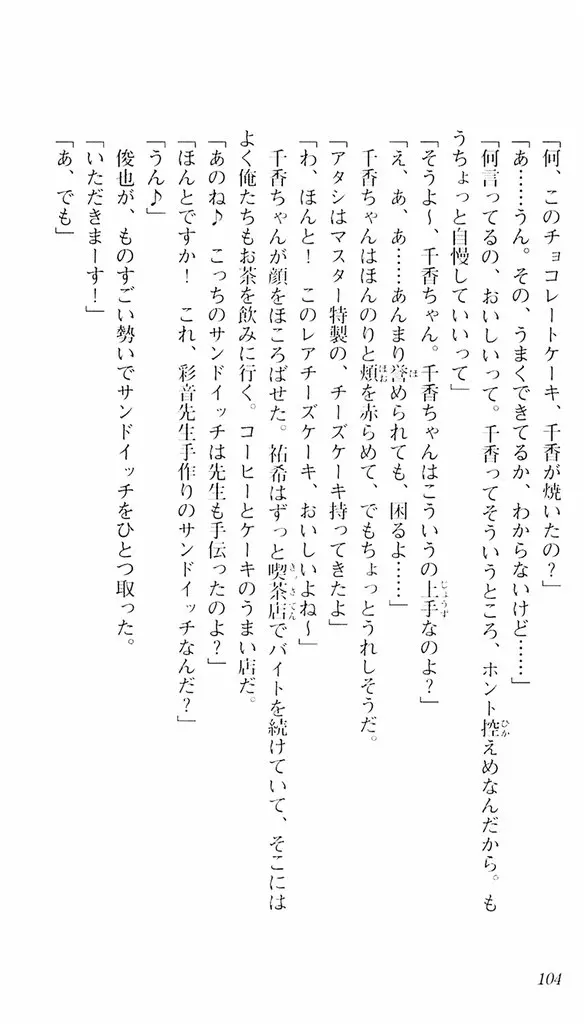 「何、このチョコレートケーキ、千香が焼いたの？」
「あ……うん。その、うまくできてるか、わからないけど……」
「何言ってるの、おいしいって。千香ってそういうところ、ホント控えめなんだから。も
うちょっと自慢していいって」
「そうよ～、千香ちゃん。千香ちゃんはこういうの上手なのよ？」
「え、あ、あ……あんまり誉められても、困るよ……」
千香ちゃんはほんのりと頬を赤らめて、でもちょっとうれしそうだ。
「アタシはマスター特製の、チーズケーキ持ってきたよ」
「わ、ほんと！　このレアチーズケーキ、おいしいよね～」
千香ちゃんが顔をほころばせた。祐希はずっと喫茶店でバイトを続けていて、そこには
よく俺たちもお茶を飲みに行く。コーヒーとケーキのうまい店だ。
「あのね♪　こっちのサンドイッチは先生も手伝ったのよ？」
「ほんとですか！　これ、彩音先生手作りのサンドイッチなんだ？」
「うん♪」
俊也が、ものすごい勢いでサンドイッチをひとつ取った。
「いただきまーす！」
「あ、でも」
104